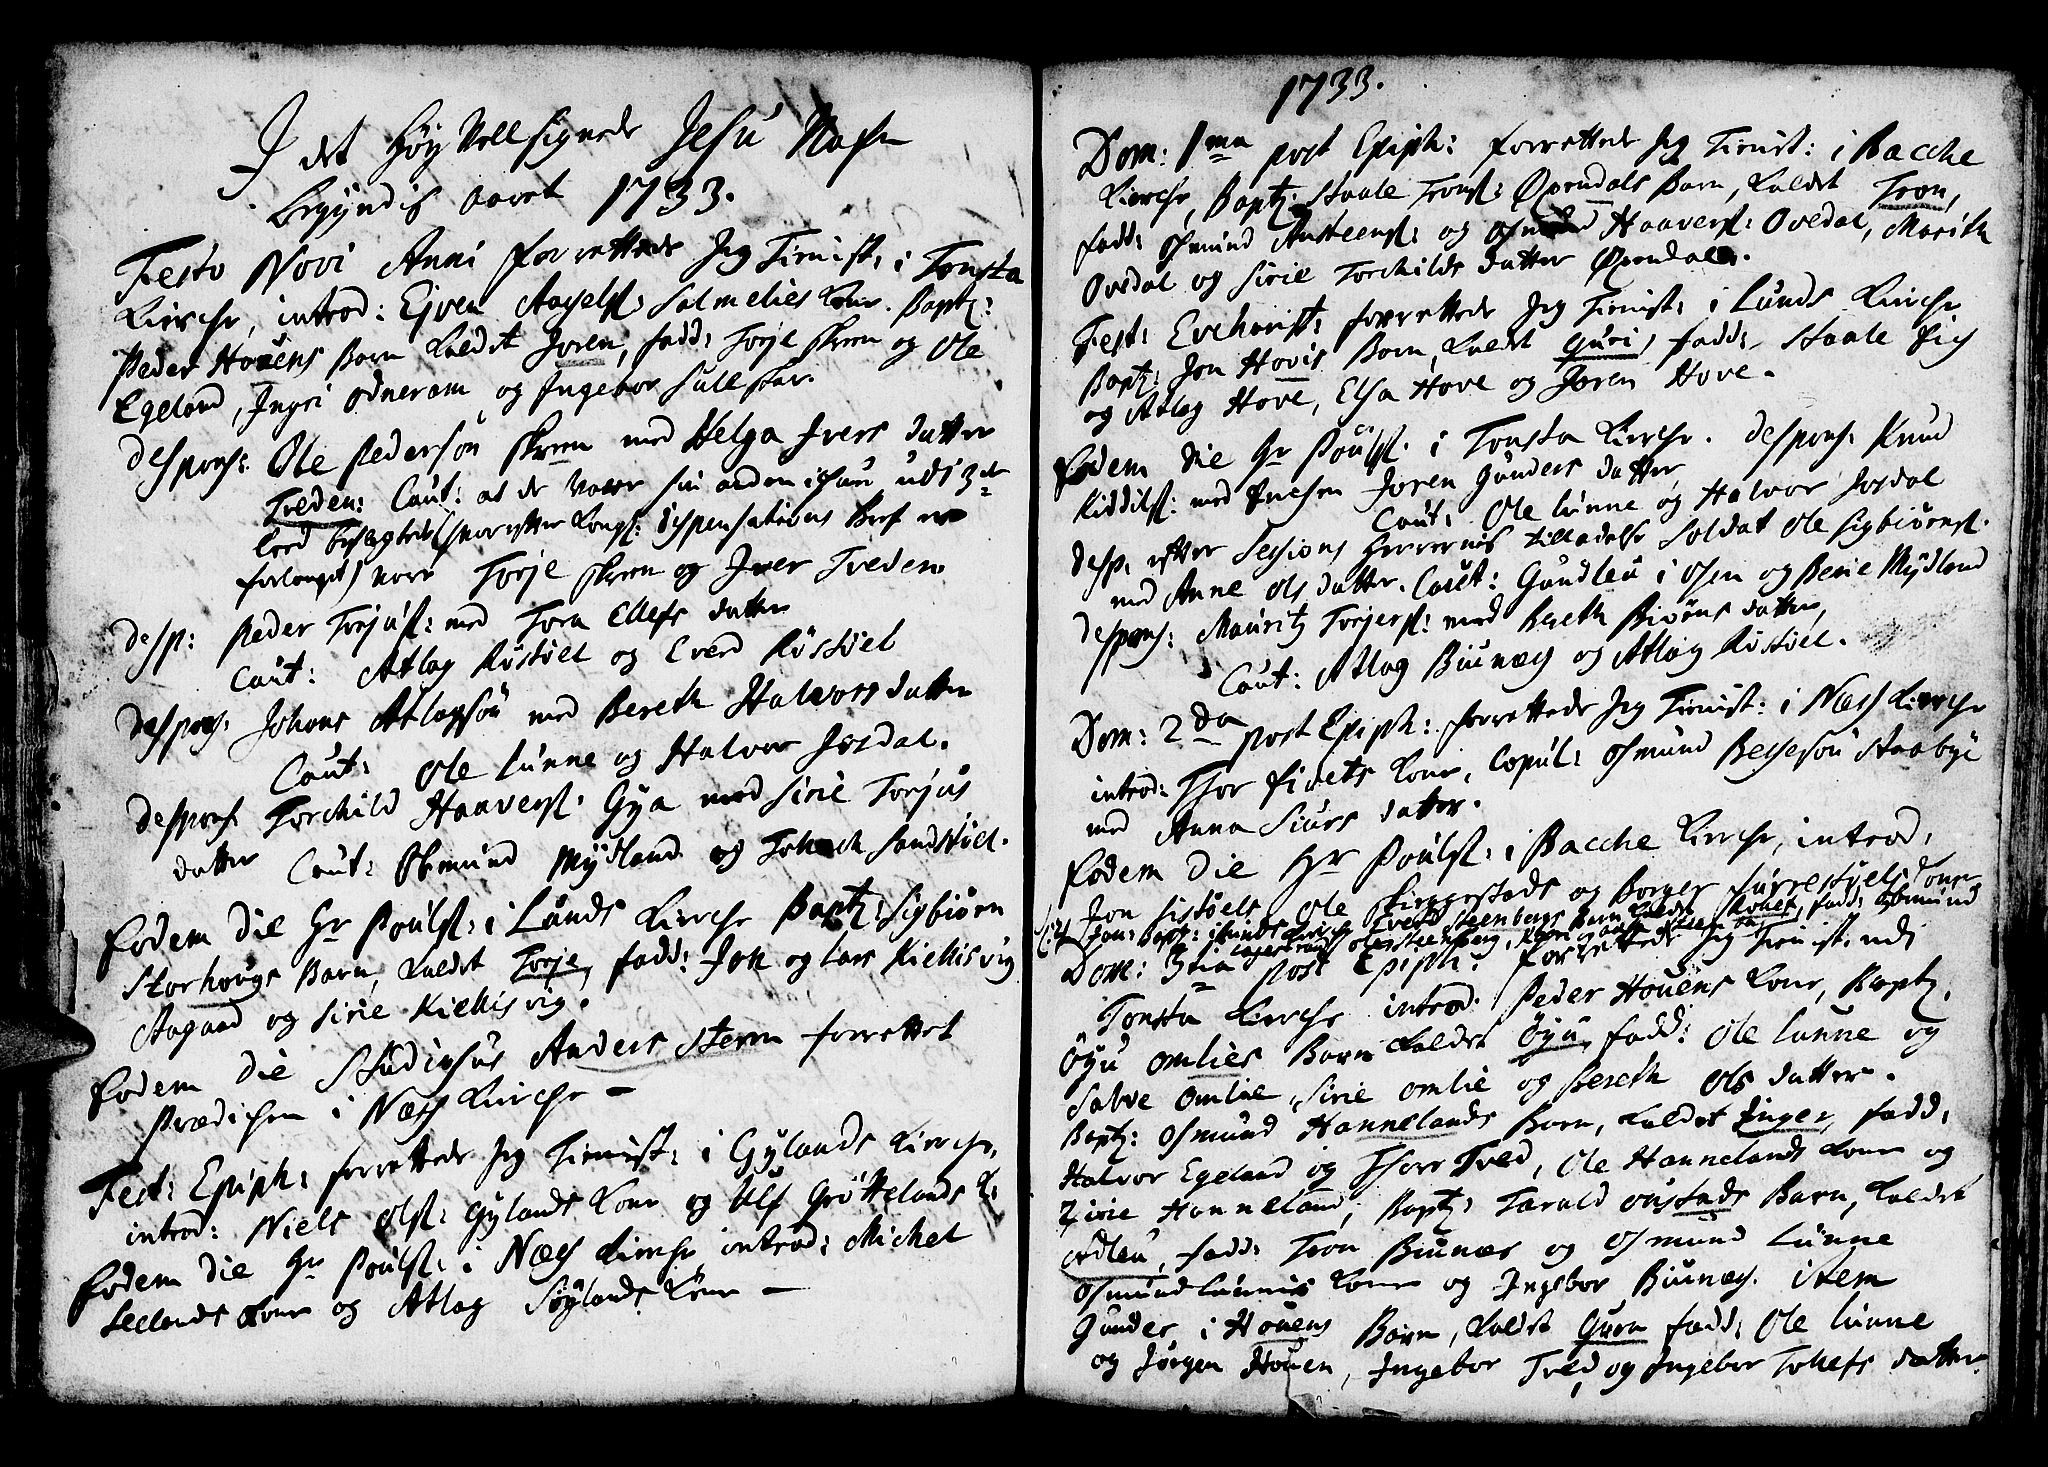 I det Høy Vellsignede Jesu Nafn
begyndis aaret 1733.
Festo Novi Anni forrettede Jeg Tienist: i Tonsta
Kirche, introd: Ejven Axelst: Salmelies Kone. Baptz:
Peder Houens Barn kaldet Joren, fadd: Torje Skren og Ole
Egeland, Ingri Odneram og Ingebor
Despons: Ole Pedersøn Skren med Helga Ivers datter
Treden: Caut: at de vaare sin anden i schøn udi 3de
leed beslegtede (hvor efter Kongl: dispensations Bref er
forlanget) vare Torje Skren og Iver Treden
Desp: Peder Torjusst: med Tora Ellefs datter
Caut: Atlag Røsstøel og Everd Røsstøel
Despons: Johans Atlagsøn med Bereth Halvors datter
Caut: Ole Lunne og Halvor Josdal.
Despons: Torchild Haaverst: Gya med Sirie Torjus
datter Caut: Osmund Mydland og Sandstøel.
Eodem Die Hr Poulst: i Lunds Kirche Baptz: Sigbiørn
Storhougs Barn, kaldet Torje, fadd: Jon og Lars Kiellisvig
Aagaad og Sirie Kiellisvig.
Eodem Die Studiosus Anders Stenn forrettet
Prædichen i Næss Kirche –
Fest: Epiph: forrettede Jeg Tienist: i Gylands Kirche,
introd: Niels Olst: Gylands Kone og Ulf Grøttelands K:
Eodem Die Hr Poulst: i Næss Kirche introd: Michel
Seelands Kone og Atlag Søylands Kone –
1733.
Dom: 1ma post Epiph: forrettede Jeg Tienist: i Bacche
Kirche, Baptz: Staale Tronst: Øvendals Barn, kaldet Tron,
fadd: Osmund Austeenst: og Osmund Haaverst: Ovedal, Marith
Ovedal og Sirie Torchilds datter Øvendal.
Fest: Evcharist: forrettede Jeg Tienist: i Lunds Kirche
Baptz: Jon Hovis Barn, kaldet Guri, fadd: Staale Eig
og Atlag Hove, Elsa Hove og Joren Hove.
Eodem die Hr Poulst: i Tonsta Kirche. Despons: Knud
Kiddilst: med Enchen Joren Gunders datter
Caut: Ole Lunne og Halvor Josdal
Desp: efter Sessions Herrernis tilladelse Soldat Ole Sigbiørnst.
med Anne Ols datter. Caut: Gundleu i Osen og Berie Mydland
Despons: Mauritz Torjerst: med Bereth Biørns datter,
Caut: Atlag Biunæs og Atlag Røstøel.
Dom: 2da post Epiph: forrettede Jeg Tienist: i Næss Kirche
introd: Thor Fidets Kone, Copul: Osmund Bessesøn Staabye
med Anna Siurs datter.
Eodem Die Hr Poulst: i Bacche Kirche, introd:
Jon Sistøels Ole Liggestads og Borger Surrestøels Koner
Baptz: i Lunds Kirche Everd Steenbergs Barn kaldet fadd: Osmund
Ole Steenberg,
Dom: 3tia post Epiph: forrettede Jeg Tienist: udi
Tonsta Kirche introd: Peder Houens Kone, Baptz:
Øyu Omlies Barn kaldet Øyu, fadd: Ole Lunne og
Salve Omlie, Sirie Omlie og Bereth Ols datter.
Baptz: Osmund Hannelands Barn, kaldet Inger, fadd:
Halvor Egeland og Thore Tved, Ole Hannelands Kone og
Zirie Hanneland, Baptz: Tarald Ousstads Barn, kaldet
Adleu, fadd: Tron Biunæs og Osmund Lunne
Osmund Lunnis Kone og Ingebor Biunæs. item
Gunder i Houens Barn, kaldet Guru fadd: Ole Lunne
og Jørgen Houen, Ingebor Tved, og Ingebor Tollefs datter